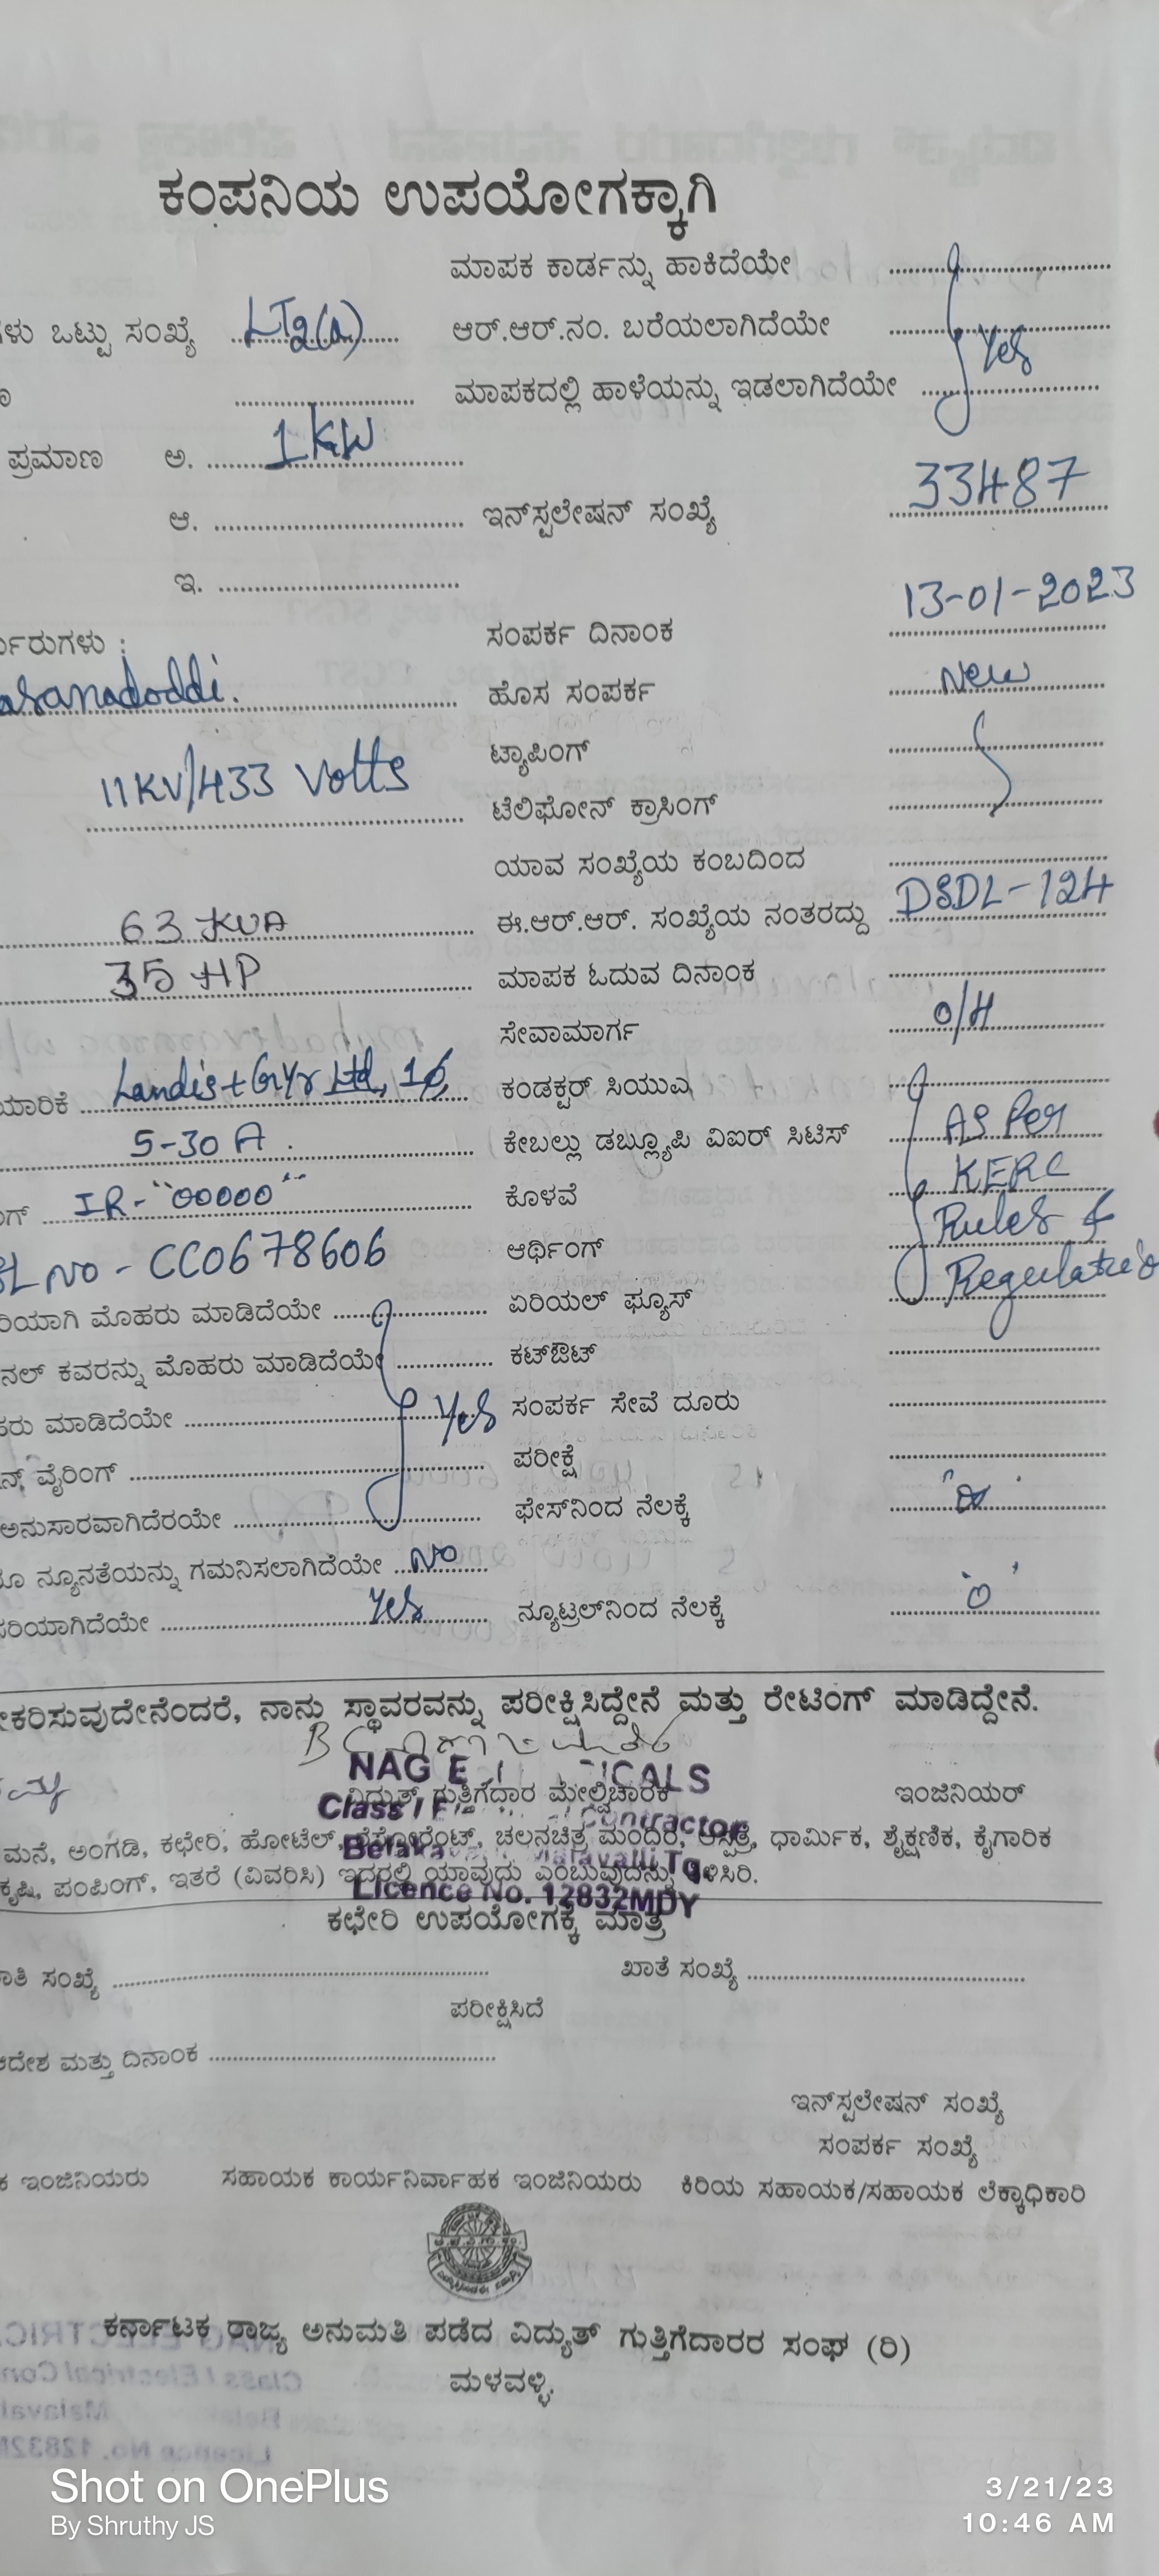 ಕಂಪನಿಯ ಉಪಯೋಗಕ್ಕಾಗಿ
ಮಾಪಕ ಕಾರ್ಡನ್ನು ಹಾಕಿದೆಯೇ
ಒಟ್ಟು ಸಂಖ್ಯೆ LT2(a) ಆರ್.ಆರ್.ನಂ. ಬರೆಯಲಾಗಿದೆಯೇ Yes
ಮಾಪಕದಲ್ಲಿ ಹಾಳೆಯನ್ನು ಇಡಲಾಗಿದೆಯೇ
ಪ್ರಮಾಣ ಅ. 1 KW
ಆ. ಇನ್‌ಸ್ಟಲೇಷನ್ ಸಂಖ್ಯೆ 33487
ಇ.
ಸಂಪರ್ಕ ದಿನಾಂಕ 13-01-2023
ಹೊಸ ಸಂಪರ್ಕ New
ಟ್ಯಾಪಿಂಗ್
11KV/433 Volts ಟೆಲಿಫೋನ್ ಕ್ರಾಸಿಂಗ್
ಯಾವ ಸಂಖ್ಯೆಯ ಕಂಬದಿಂದ
63 KVA ಈ.ಆರ್.ಆರ್. ಸಂಖ್ಯೆಯ ನಂತರದ್ದು DSDL-124
35 HP ಮಾಪಕ ಓದುವ ದಿನಾಂಕ
ಸೇವಾಮಾರ್ಗ O/H
Landis+Gyr Ltd, 1ϕ, ಕಂಡಕ್ಟರ್ ಸಿಯುಎ
5-30 A. ಕೇಬಲ್ಲು ಡಬ್ಲ್ಯೂಪಿ ವಿಐರ್ ಸಿಟಿಸ್ As Per
IR-"00000" ಕೊಳವೆ KERC
SL NO - CC0678606 ಆರ್ಥಿಂಗ್ Rules &
ಮೊಹರು ಮಾಡಿದೆಯೇ ಏರಿಯಲ್ ಫ್ಯೂಸ್
ಕವರನ್ನು ಮೊಹರು ಮಾಡಿದೆಯೇ ಕಟ್‌ಔಟ್
ಮಾಡಿದೆಯೇ Yes ಸಂಪರ್ಕ ಸೇವೆ ದೂರು
ವೈರಿಂಗ್ ಪರೀಕ್ಷೆ
ಅನುಸಾರವಾಗಿದೆರಯೇ ಫೇಸ್‌ನಿಂದ ನೆಲಕ್ಕೆ
ನ್ಯೂನತೆಯನ್ನು ಗಮನಿಸಲಾಗಿದೆಯೇ No
Yes ನ್ಯೂಟ್ರಲ್‌ನಿಂದ ನೆಲಕ್ಕೆ
ನಾನು ಸ್ಥಾವರವನ್ನು ಪರೀಕ್ಷಿಸಿದ್ದೇನೆ ಮತ್ತು ರೇಟಿಂಗ್ ಮಾಡಿದ್ದೇನೆ.
ವಿದ್ಯುತ್ ಗುತ್ತಿಗೆದ್ದಾರ ಮೇಲ್ವಿಚಾರಕ ಇಂಜಿನಿಯರ್
ಮನೆ, ಅಂಗಡಿ, ಕಛೇರಿ, ಹೋಟೆಲ್, ರೆಸ್ಟೋರೆಂಟ್, ಚಲನಚಿತ್ರ ಮಂದಿರ, ಆಸ್ಪತ್ರೆ, ಧಾರ್ಮಿಕ, ಶೈಕ್ಷಣಿಕ, ಕೈಗಾರಿಕ
ಕೃಷಿ, ಪಂಪಿಂಗ್, ಇತರೆ (ವಿವರಿಸಿ) ಇದರಲ್ಲಿ ಯಾವುದು ಎಂಬುವುದನ್ನು ತಿಳಿಸಿರಿ.
Licence No. 12832MDY
ಕಛೇರಿ ಉಪಯೋಗಕ್ಕೆ ಮಾತ್ರ
ಸಂಖ್ಯೆ ಖಾತೆ ಸಂಖ್ಯೆ
ಪರೀಕ್ಷಿಸಿದೆ
ಆದೇಶ ಮತ್ತು ದಿನಾಂಕ
ಇನ್‌ಸ್ಟಲೇಷನ್ ಸಂಖ್ಯೆ
ಸಂಪರ್ಕ ಸಂಖ್ಯೆ
ಇಂಜಿನಿಯರು ಸಹಾಯಕ ಕಾರ್ಯನಿರ್ವಾಹಕ ಇಂಜಿನಿಯರು ಕಿರಿಯ ಸಹಾಯಕ/ಸಹಾಯಕ ಲೆಕ್ಕಾಧಿಕಾರಿ
ಕರ್ನಾಟಕ ರಾಜ್ಯ ಅನುಮತಿ ಪಡೆದ ವಿದ್ಯುತ್ ಗುತ್ತಿಗೆದಾರರ ಸಂಘ (ರಿ)
ಮಳವಳ್ಳಿ.
Shot on OnePlus
By Shruthy JS
3/21/23
10:46 AM